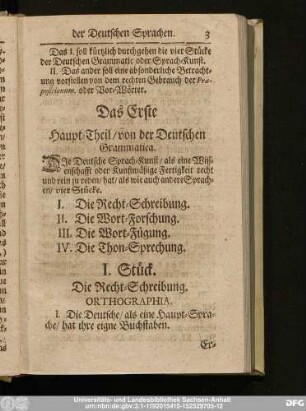 der Deutschen Sprachen. 3
Das I. soll kürtzlich durchgehen die vier Stücke
der Deutschen Grammatic oder Sprach-Kunst.
II. Das ander soll eine absonderliche Betracht-
ung vorstellen von dem rechten Gebrauch der Præ-
positionum, oder Vor-Wörter.
Das Erste
Haupt-Theil / von der Deutschen
Grammatica.
DIe Deutsche Sprach-Kunst / als eine Wiß-
enschafft oder Kunstmäßige Fertigkeit recht
und rein zu reden / hat / als wie auch andere Sprach-
en / vier Stücke.
I. Die Recht-Schreibung.
II. Die Wort-Forschung.
III. Die Wort-Fügung.
IV. Die Thon-Sprechung.
I. Stück.
Die Recht-Schreibung.
ORTHOGRAPHIA.
1. Die Deutsche / als eine Haupt-Spra-
che / hat ihre eigne Buchstaben.
Er-
Universitäts- und Landesbibliothek Sachsen-Anhalt
urn:nbn:de:gbv:3:1-1192015415-152529705-12
DFG